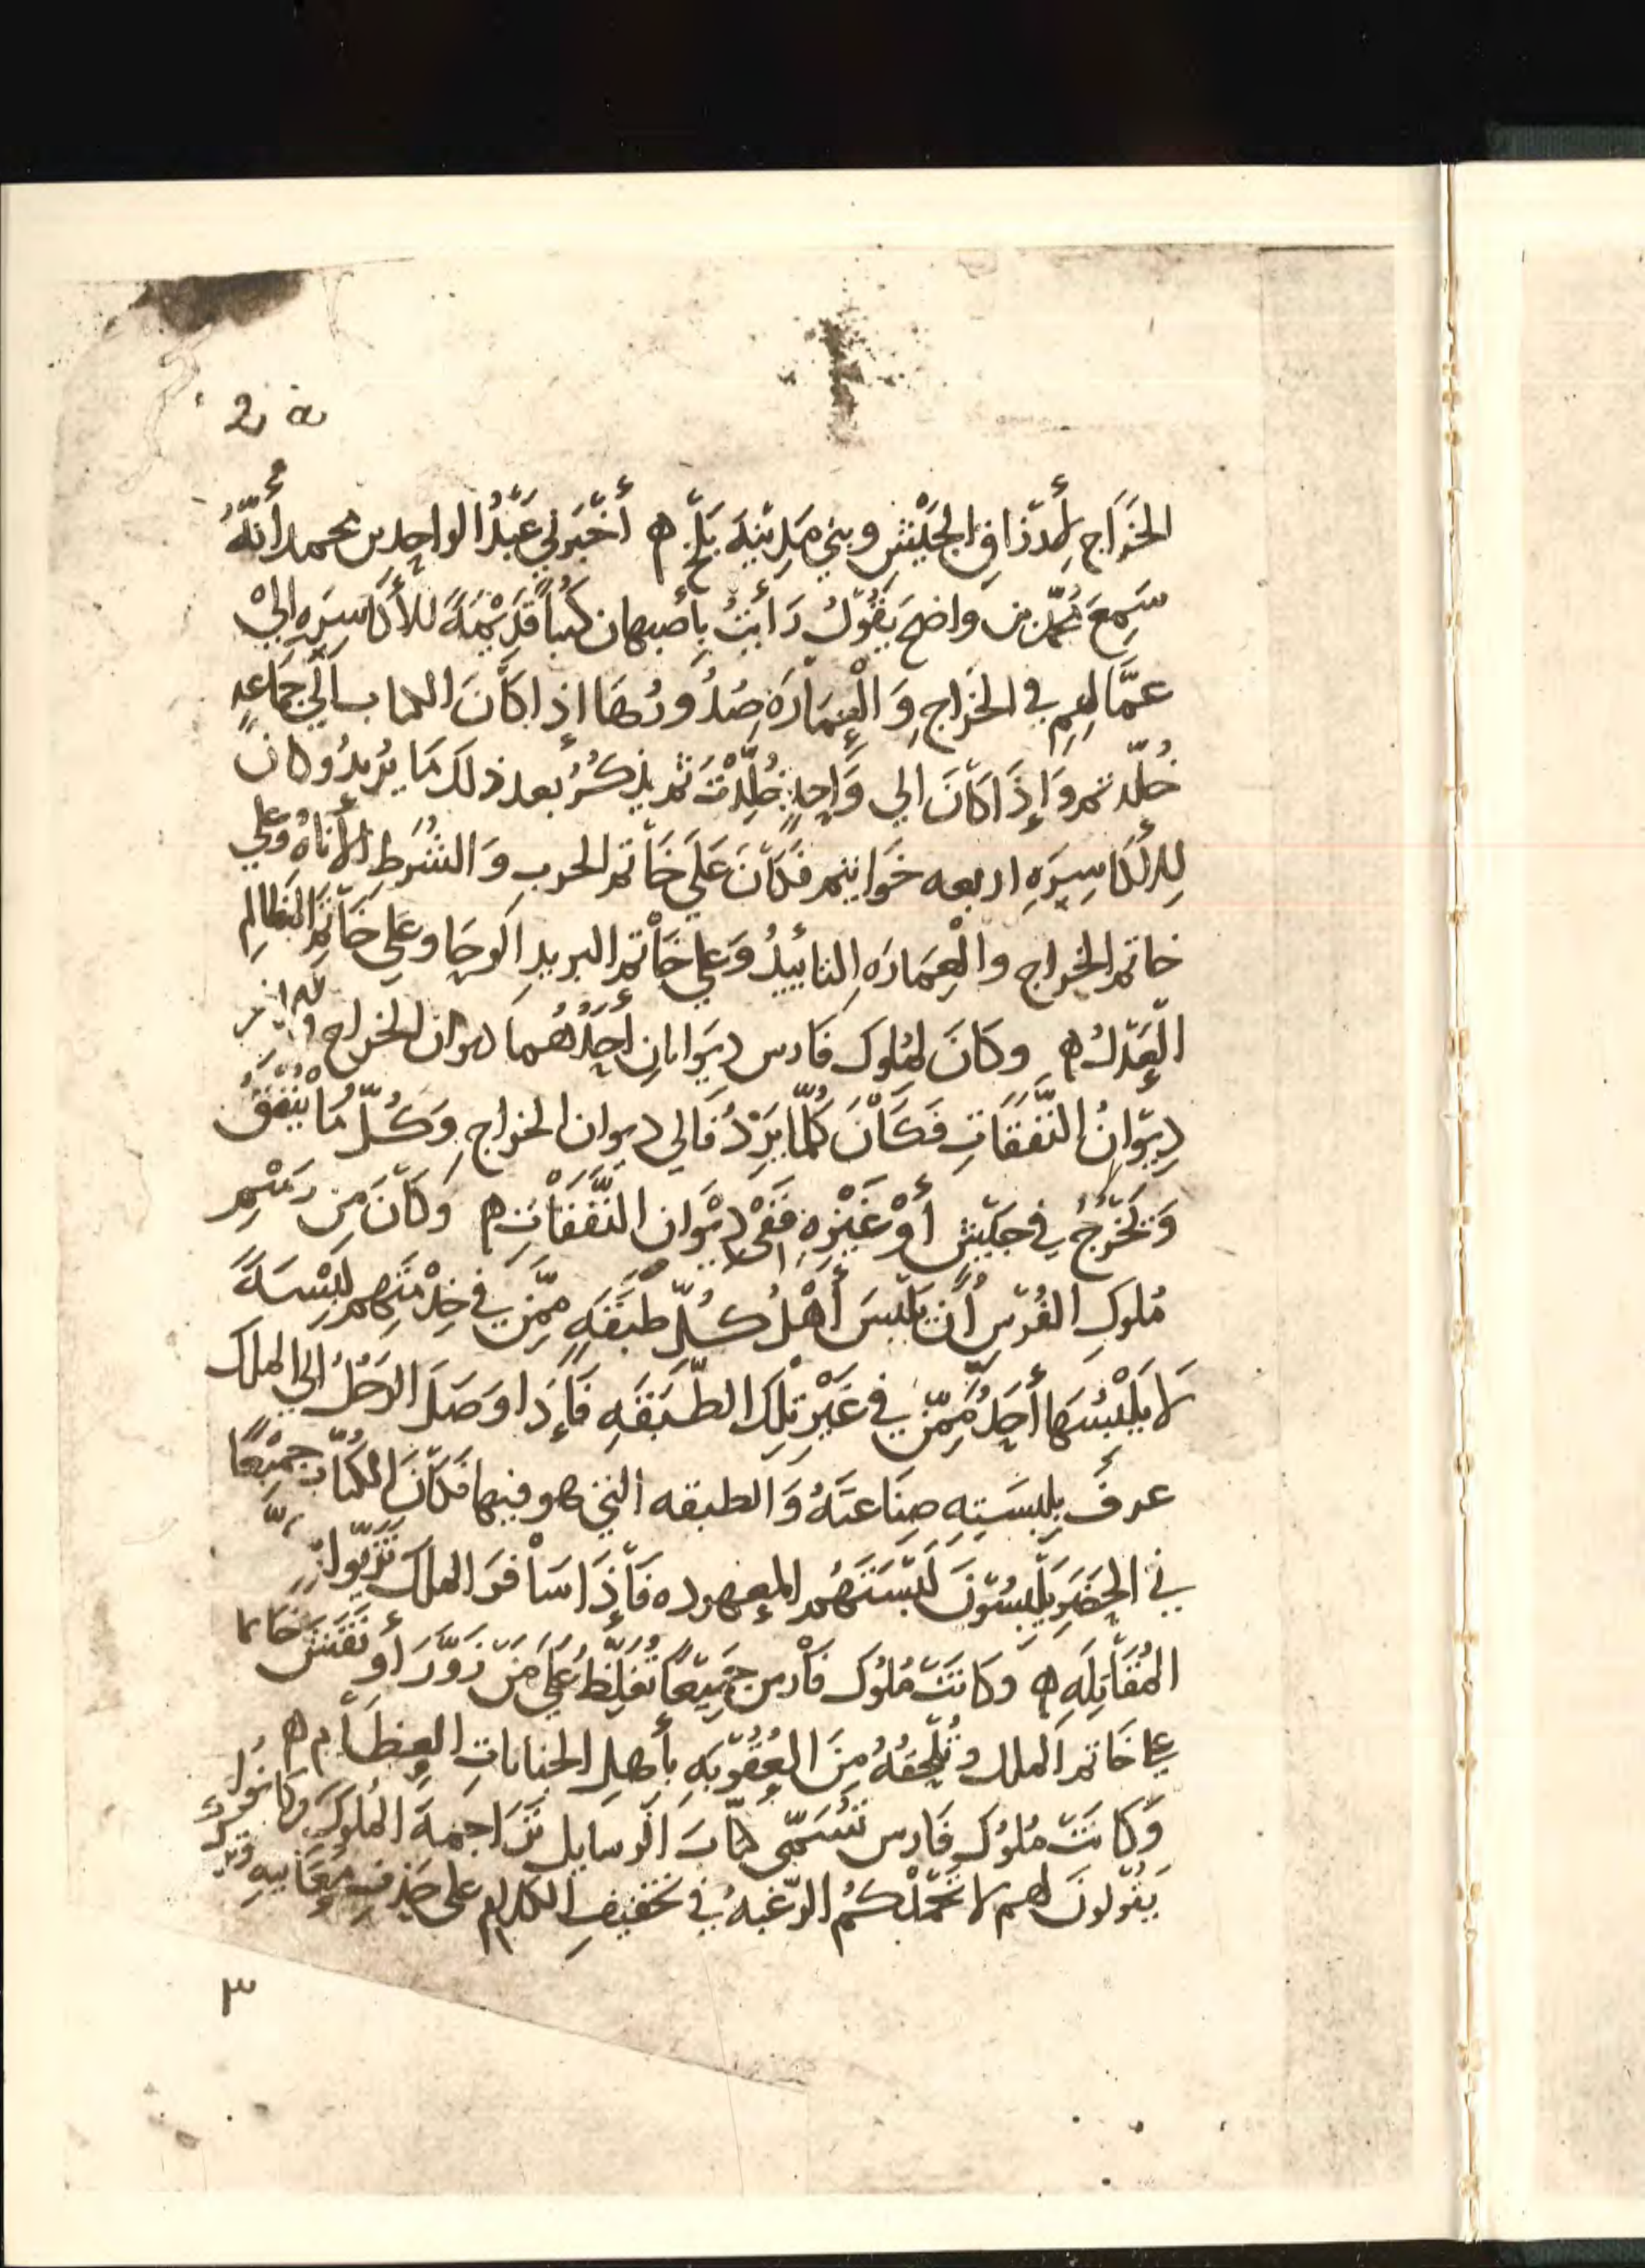 2 a
الخَرَاجِ لِأرزاقِ الجَيْشِ وبني مَدِينَةَ بَلْخ ه أَخْبَرَنِي عَبْدُ الواحِدِ بن محمد أَنَّهُ
سَمِعَ مُحمّد بن واضح يَقُوْلُ رَأَيْتُ بِأَصبهان كُتباً قَدِيْمَةً للأَكَاسِرَهِ إلَىْ
عمَّالِهِم في الخَراجِ وَالْعِمَارَة صُدُورُهَا إِذا كَانَ الكتاب إلَي جَمَاعَةٍ
خُلّدتم وَإِذَا كَانَ الي وَاحِدٍ خُلِّدْتَ ثم يذكُرُ بعد ذلكَ مَا يُرِيدُ وكانَ
لِلأَكَاسِرَهِ اربعه خَوَاتيم فَكَانَ عَلَي خَاتم الحربِ وَالشُرَطِ الأَناةُ وَعلي
خاتم الخراج والْعِمَارَهِ التأييدُ وَعلي خَاتم البريدِ الوَحَا وعَلي خَاتم المَظالمِ
الْعَدْلُ ه وكَانَ لمُلوك فَارس دِيَوانانِ أَحَدُهُما ديوان الخراج والآخر
دِيوَانُ النَّفَقَاتِ فَكَانَ كُلّمَا يَرِدُ فَالي ديوان الخراجِ وَكُلّ مَا يُنْفَقُ
وَيَخرُجُ في جَيْشٍ أَوْ غَيْرِهِ فَفِي دِيْوَان النَّفَقَاتِ ه وَكَانَ مِن رَسْمِ
مُلوكِ الفُرْسِ أَن يَلْبَسَ أَهْلُ كُلّ طَبَقَهٍ مِمَّن في خِدْمَتِهم لِبْسَةً
لَا يَلْبَسُهَا أَحَدٌ مِمَّن في غَيْرِ تِلكَ الطَّبَقَهِ فَإِذَا وَصَلَ الرَجُلُ الي الملك
عرفَ بِلبسَتِهِ صِنَاعَتَهُ وَالطبقه التي هو فيها فَكَانَ الكُتّاب جَمِيْعًا
في الحَضَرِ يَلْبَسُوْنَ لَبْسَتَهُم المعهوده فَإِذَا سَافَرَ الملك تَزَيّوا بزيّ
المُقَاتِلَهِ ه وَكَانَتْ مُلُوك فَارس جَمِيْعًا تُغَلِّظُ عَلَي مَنْ زَوَّرَ أَو نَقَشَ خَاتما
علي خَاتم الملك وتُلحِقُهُ مِنَ العُقُوْبَهِ بأَهلِ الجناياتِ العِظَامِ ه
وَكَانَتْ مُلوُك فَارس تُسَمّي كتّابَ الرسايل تَرَاجِمةَ المُلوكِ وكانُوا
يَقُولونَ لهم لا تَحْمِلْكُمُ الرّغبهُ في تخفيفِ الكلامِ على حَذفِ مَعَانِيهِ وترك
٣